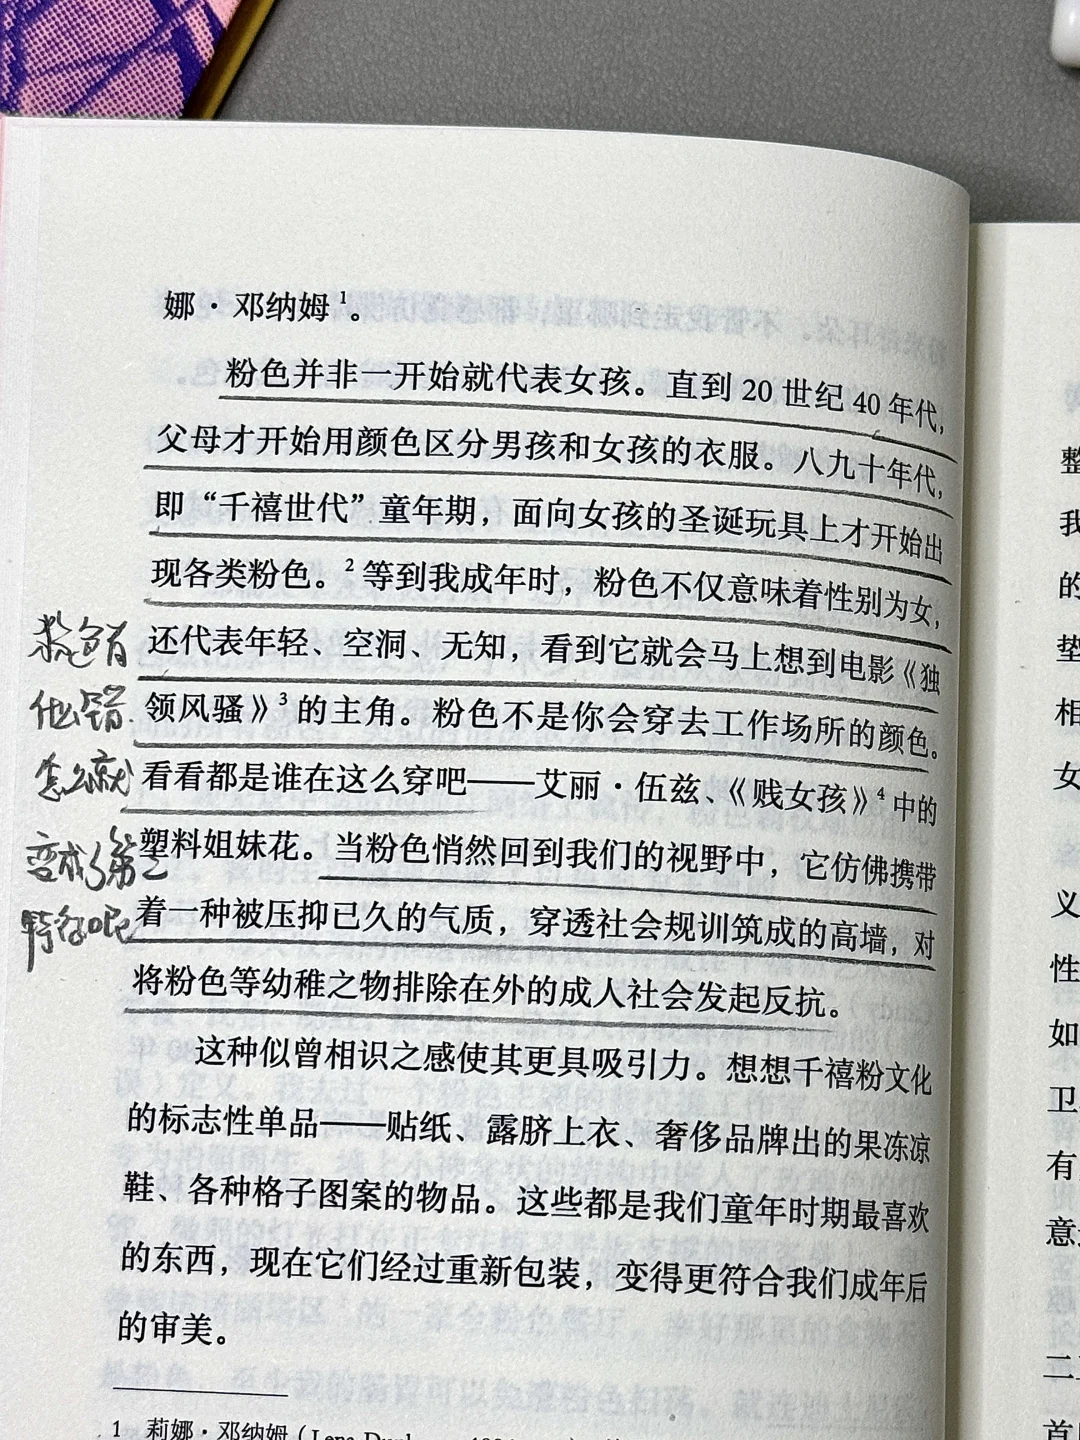 娜·邓纳姆1。
粉色并非一开始就代表女孩。直到 20 世纪 40 年代，
父母才开始用颜色区分男孩和女孩的衣服。八九十年代，
即“千禧世代”童年期，面向女孩的圣诞玩具上才开始出
现各类粉色。2 等到我成年时，粉色不仅意味着性别为女，
还代表年轻、空洞、无知，看到它就会马上想到电影《独
领风骚》3 的主角。粉色不是你会穿去工作场所的颜色。
看看都是谁在这么穿吧——艾丽·伍兹、《贱女孩》4 中的
塑料姐妹花。当粉色悄然回到我们的视野中，它仿佛携带
着一种被压抑已久的气质，穿透社会规训筑成的高墙，对
将粉色等幼稚之物排除在外的成人社会发起反抗。
这种似曾相识之感使其更具吸引力。想想千禧粉文化
的标志性单品——贴纸、露脐上衣、奢侈品牌出的果冻凉
鞋、各种格子图案的物品。这些都是我们童年时期最喜欢
的东西，现在它们经过重新包装，变得更符合我们成年后
的审美。
1 莉娜·邓纳姆（Lena
粉色有
什么错
怎么就
变成了第二
特征呢
整
我
的
垫
相
女
义
性
如
卫
有
意
二
首